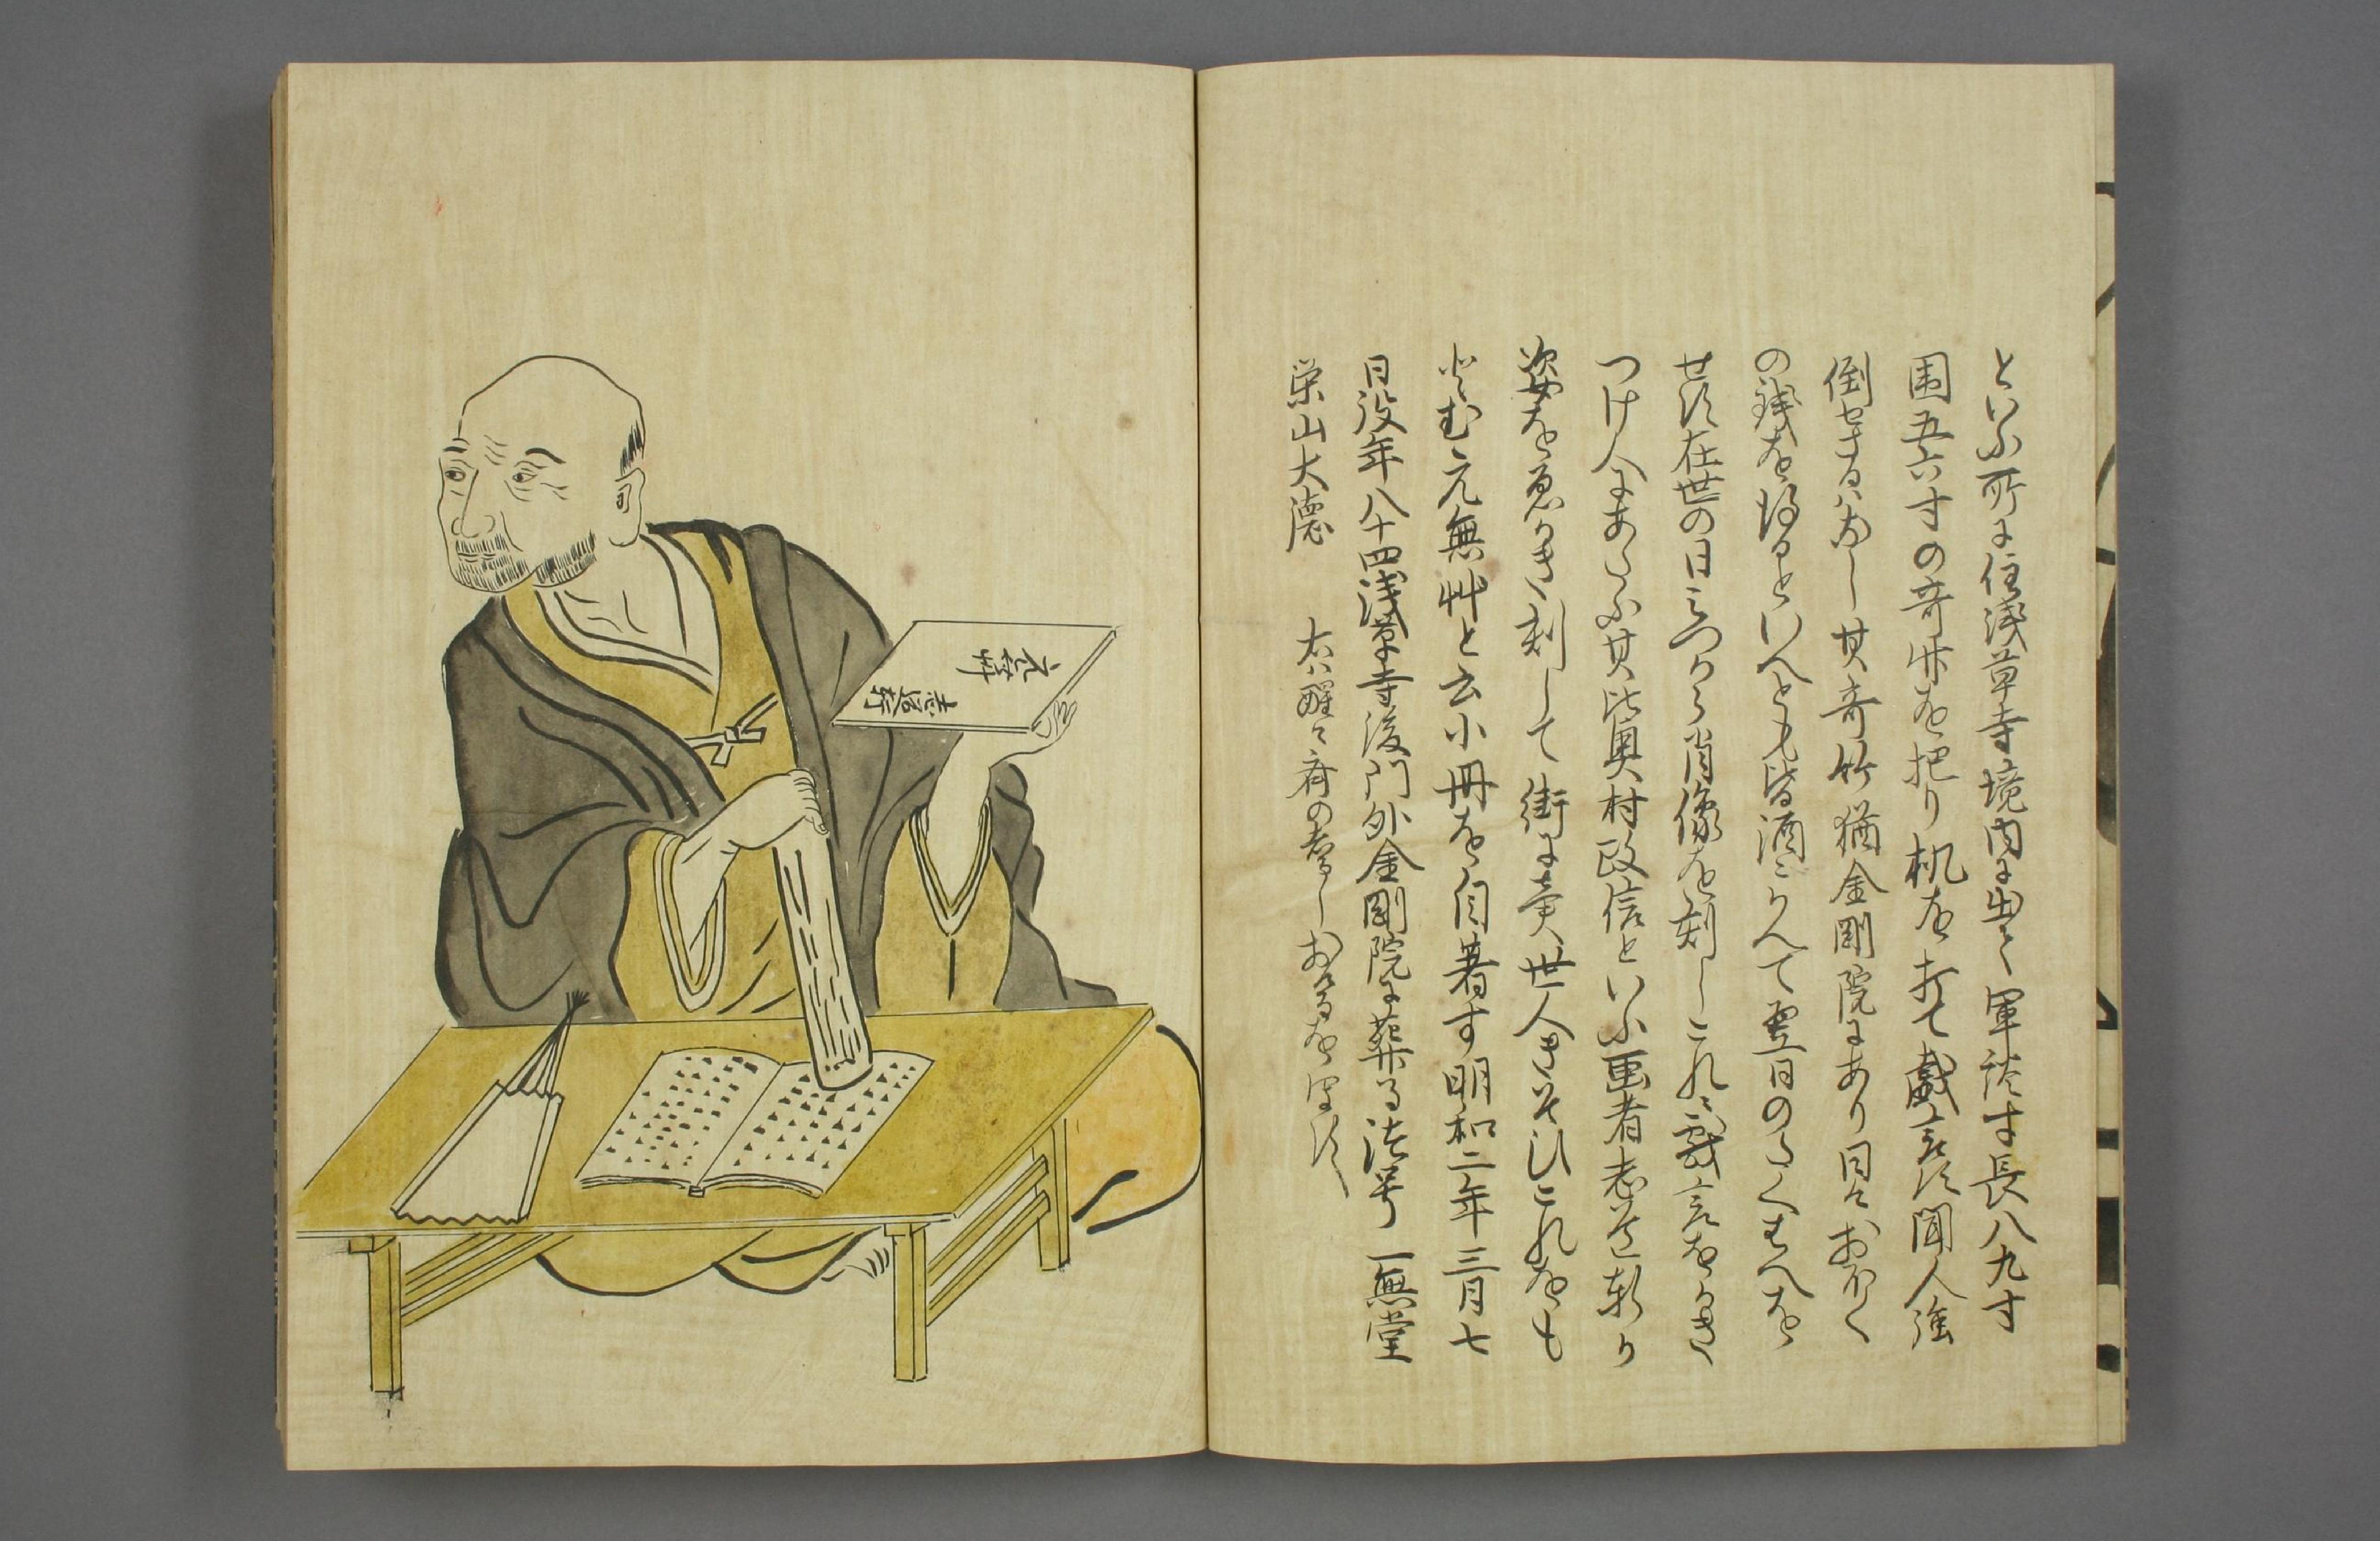 といふ所に住浅草寺境内に出て軍談す長八九寸
囲五六寸の奇竹を把り机を打て戯言す聞人強
倒せさるハなし其奇竹猶金剛院にあり日々おほく
の銭を得るといへとも皆酒にかへて翌日のたくはへを
せす在世の日みつから肖像を刻しこれに戯言をかき
つけ人にあたふ其比奥村政信といふ画者志道軒か
姿を画かき刻して街に売世人きそひこれをも
とむ元無艸と云小冊を自著す明和二年三月七
日没年八十四浅草寺後門外金剛院に葬る法号一無堂
栄山大徳　右ハ醒々斎の考しおけるを写す
元無艸
志道軒